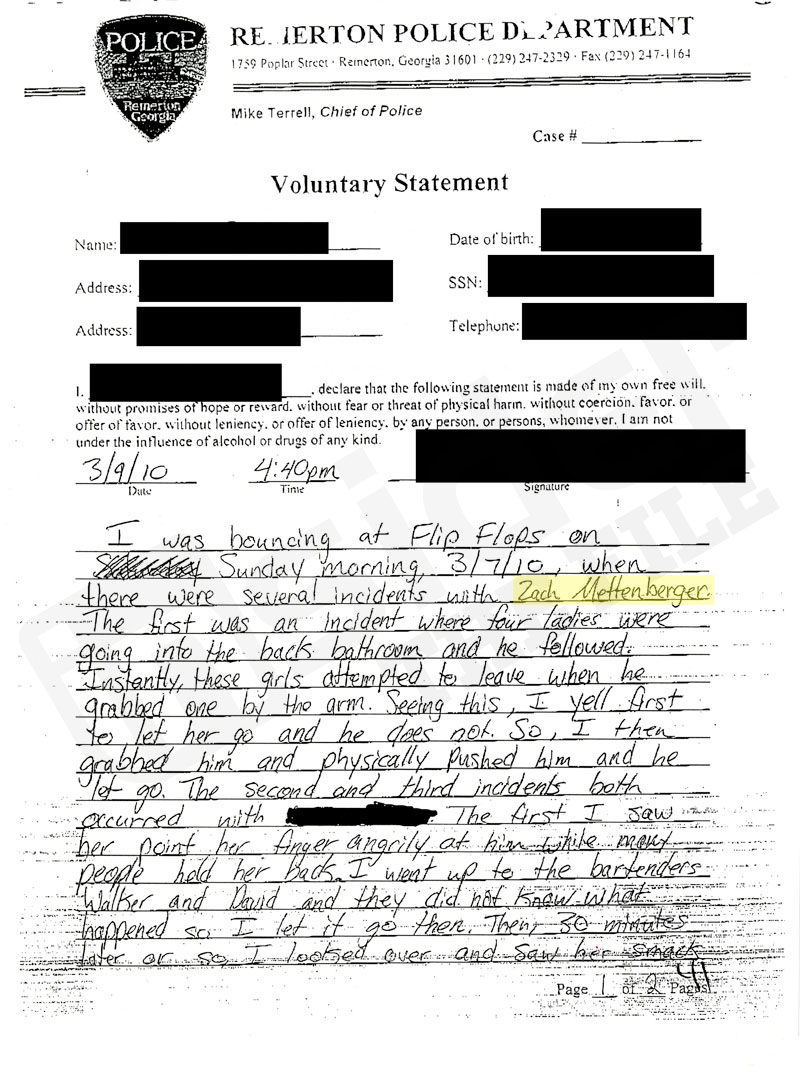 POLICE
Remerton
Georgia
REMERTON POLICE DEPARTMENT
1759 Poplar Street · Remerton, Georgia 31601 · (229) 247-2329 · Fax (229) 247-1164
Mike Terrell, Chief of Police
Case #
Voluntary Statement
Name:
Date of birth:
Address:
SSN:
Address:
Telephone:
I, , declare that the following statement is made of my own free will,
without promises of hope or reward, without fear or threat of physical harm, without coercion, favor, or
offer of favor, without leniency, or offer of leniency, by any person, or persons, whomever. I am not
under the influence of alcohol or drugs of any kind.
3/9/10 4:40pm
Date Time Signature
I was bouncing at Flip Flops on
Sunday morning, 3/7/10, when
there were several incidents with Zach Mettenberger.
The first was an incident where four ladies were
going into the back bathroom and he followed.
Instantly, these girls attempted to leave when he
grabbed one by the arm. Seeing this, I yell first
to let her go and he does not. So, I then
grabbed him and physically pushed him and he
let go. The second and third incidents both
occurred with The first I saw
her point her finger angrily at him while many
people held her back. I went up to the bartenders
Walker and David and they did not know what
happened so I let it go then. Then, 30 minutes
later or so I looked over and saw her smack
Page 1 of 2 Pages